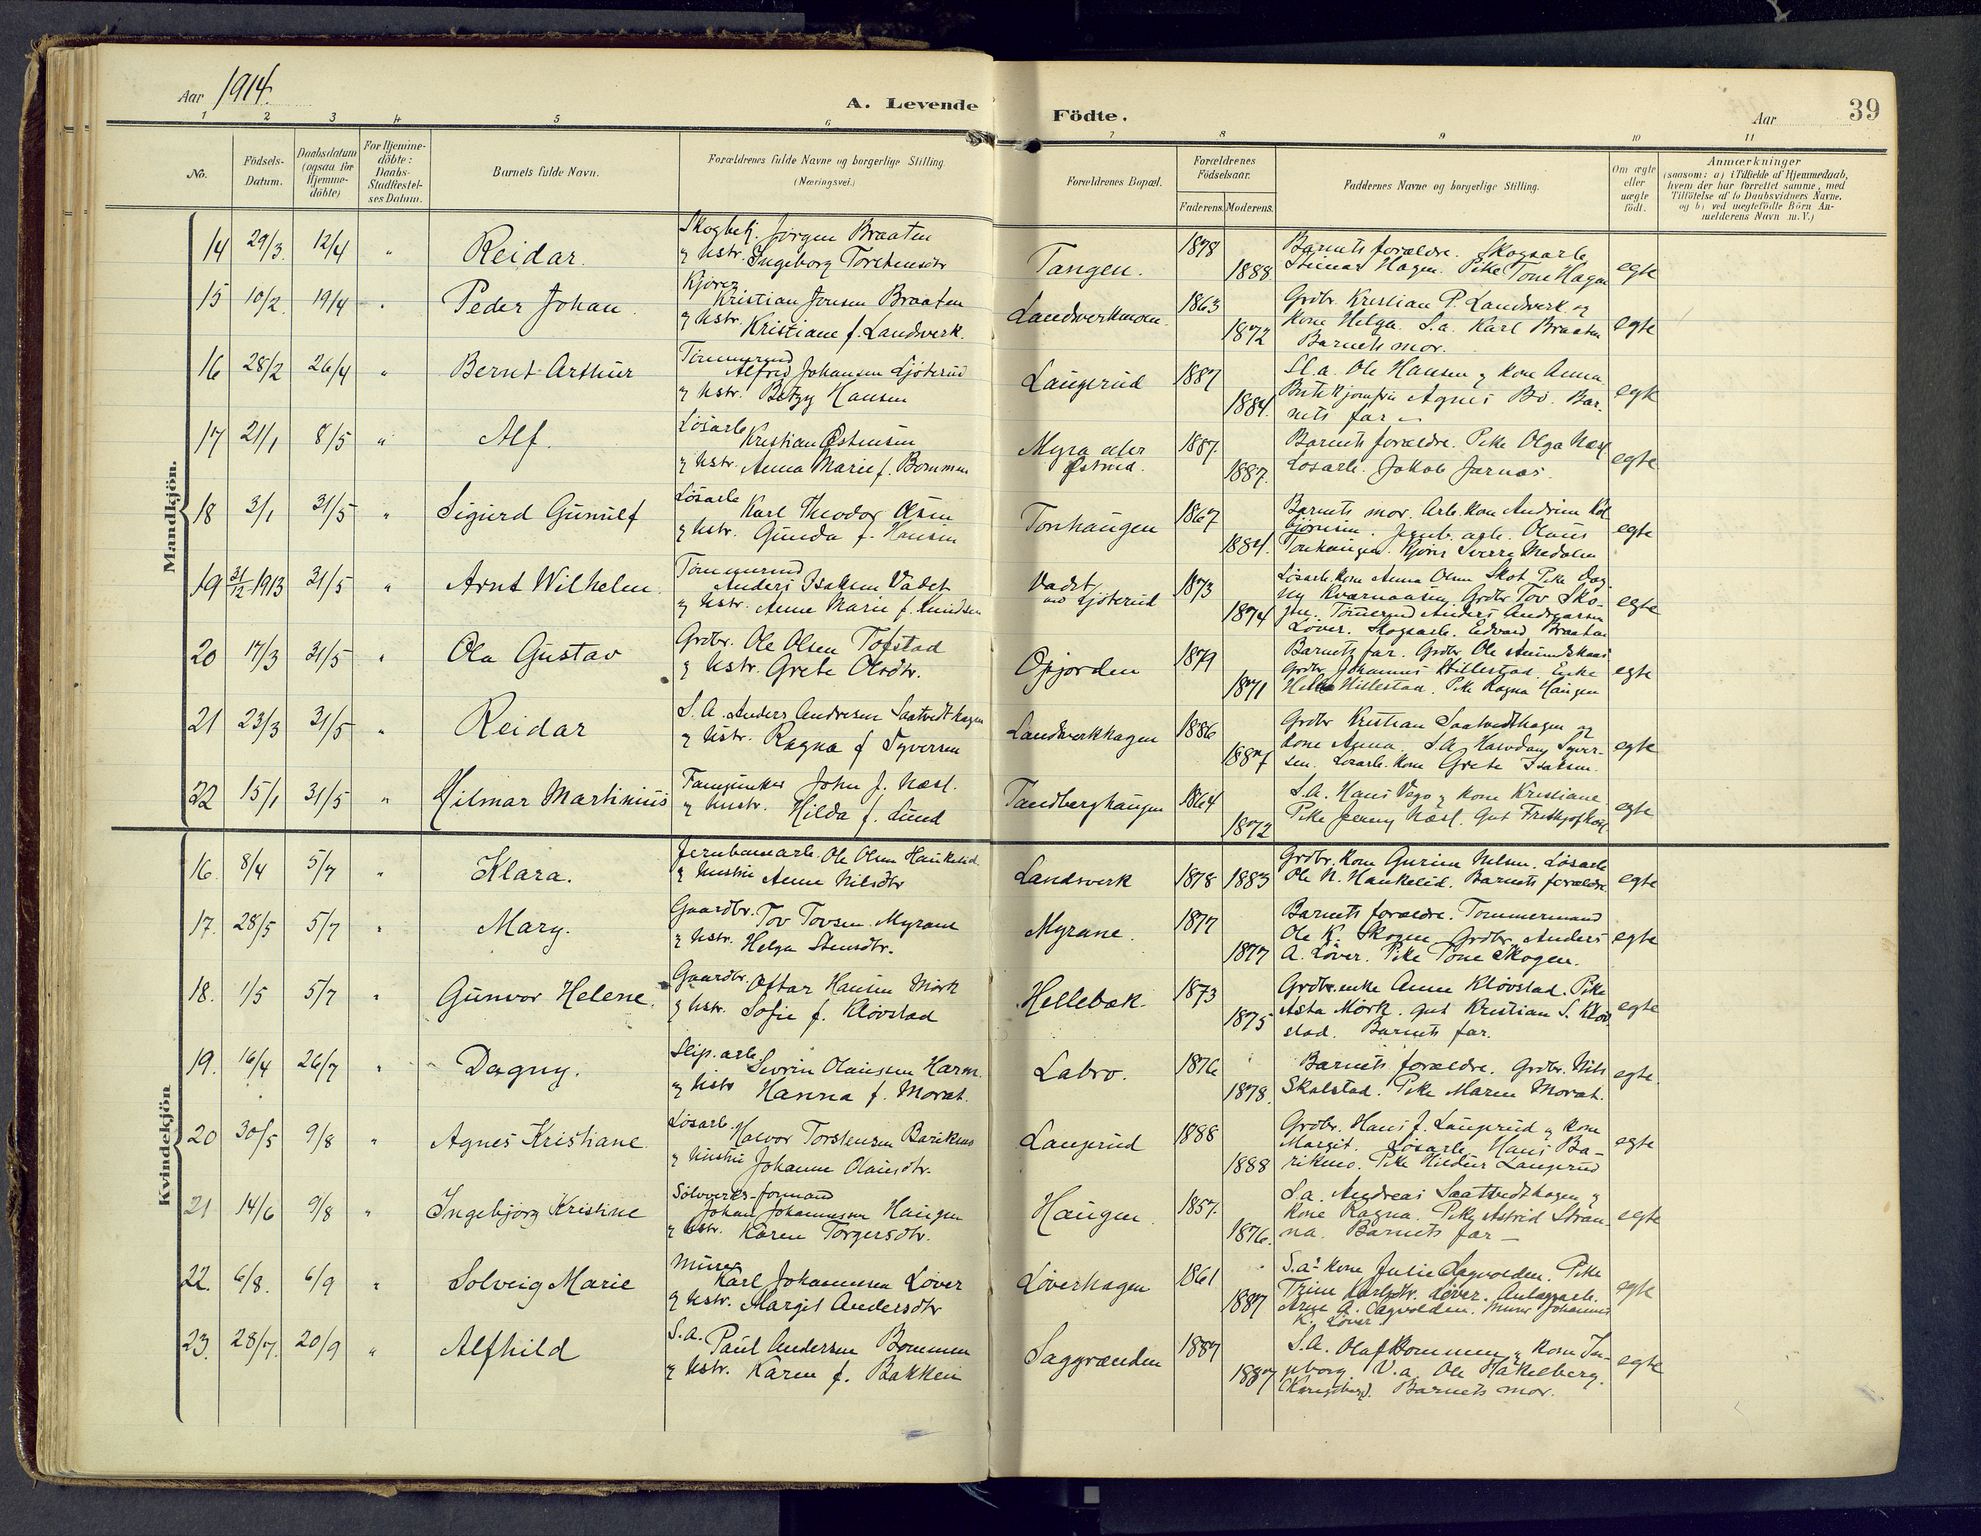 Aar 1914.
A. Levende Födte.
Aar
39
1 2 3 4 5 6 7 8 9 10 11
No.
Födsels-Datum.
Daabsdatum (ogsaa for Hjemme-döbte)
For Hjemme-döbte: Daabs-Stadfestel-ses Datum.
Barnets fulde Navn.
Forældrenes fulde Navne og borgerlige Stilling. (Næringsvei.)
Forældrenes Bopæl.
Forældrenes Födselsaar.
Faderens. Moderens.
Faddernes Navne og borgerlige Stilling.
Om ægte eller uægte födt.
Anmærkninger
(saasom: a) i Tilfælde af Hjemmedaab, hvem der har forrettet samme, med Tilföielse af to Daabsvidners Navne, og b) ved uægtefödte Börn An-melderens Navn m. V.)
Mandkjön.
14 29/3. 12/4 " Reidar. Skogbet. Jørgen Braaten
& hstr. Ingeborg Torstensdtr Tangen. 1878 1888 Barnets forældre. Skogsarb.
Steinar Hagen. Pike Tone Hagen egte
15 10/2. 19/4 " Peder Johan. Kjører Kristian Jensen Braaten
& hstr. Kristiane f. Landverk. Landverkmoen. 1863 1872 Grdbr. Kristian P. Landverk og
kone Helga. S.a. Karl Braaten
Barnets mor. egte
16 28/2 26/4 " Bernt Arthur Tømmermd Alfred Johansen Ljøterud
& hstr. Betzy Hansen Laugerud 1887 1884. S.a. Ole Hansen & kone Anna
Agnes Bø. Bar-
nets far - egte
17 21/1 8/5 " Alf. Løsarb Kristian Østensen
& hstr. Anna Marie f. Bommen Myra 1887. 1887. Barnets forældre. Pike Olga Næsl
Løsarb. Jakob Jarnæs. egte
18 3/1 31/5 " Sigurd Gunulf Løsarb Karl Theodor Olsen
& hstr. Gunda f. Hansen Tonhaugen 1867 1884. Barnets mor. Arb. kone Andrine Kol
bjørnsen. Jernb. arb. Olaus
Tonhaugen. Kjører Sverre Medalen egte
19 31/12 1913 31/5 " Arnt Wilhelm. Tømmermd Anders Isaksen Vadet
& hstr. Anne Marie f. Knudsen Vadet Ljøterud 1873 1874 Løsarb. kone Anna Olsen Skot. Pike Dag
ny Kværnaasen. Grdbr. Tov Sko-
gen. Tømmermd Anders Andreassen
Løver. Skogsarb. Edvard Braaten egte
20 17/3 31/5 " Ola Gustav Grdbr. Ole Olsen Tofstad
& hstr. Grete Olsdtr. Opjorden 1879 1871 Barnets far. Grdbr. Ole
Grdbr. Johannes Hillestad. Enke
Hillestad. Pike Ragna Haugen egte
21 23/3 31/5 " Reidar S.A. Anders Andresen Saatvedthagen
& hstr. Ragna f Syversen Landverkhagen 1886 1887 Grdbr Kristian Saatvedthagen og
kone Anna. S.A. Syver-
sen. Løsarb. kone Grete Isaksen. egte
22 15/1 31/5 " Hilmar Martinius John J. Næsl.
& hustr. Hilda f. Lund Tandberghaugen 1864 1872 S.A. Hans Vego & kone Kristiane.
Pike Jenny Næsl. Gut Frithjof egte
Kvindekjön
16 8/4 5/7 " Klara. Jernbanearb. Ole Olsen Haukelid
& hustru Anne Nilsdtr Landsverk 1878 1883 Grdbr. kone Gurine Nilsen. Løsarb
Ole N. Haukelid. Barnets forældre egte
17. 28/5 5/7 " Mary. Gaardbr. Tov Tovsen Myrane
& hstr. Helga Stensdtr. Myrane. 1877 1877 Barnets forældre. Tømmermand
Ole K. Skogen. Grdbr. Anders
A. Løver. Pike Tone Skogen. egte
18. 1/5 5/7 " Gunvor Helene. Gaardbr. Oftar Hansen Mørk
& hstr. Sofie f. Kløvstad Hellebæk. 1873 1875 Grdbr. enke Anne Kløvstad. Pike
Asta Mørk. Gut Kristian S. Kløv
stad. Barnets far. egte
19. 16/4 26/7 " Dagny. Slip. arb. Sevrin Olaussen Harm.
& hstr Hanna f. Morat. Labro. 1876 1878. Barnets forældre. Grdbr. Nils
Skalstad. Pike Maren Morat. egte.
20 30/5 9/8 " Agnes Kristiane Løsarb. Halvor Torstensen Barikmo
& hustru Johanne Olausdtr. Laugerud 1888 1888 Grdbr. Hans J. Laugerud & kone
Margit. Løsarb. Hans Ba-
rikmo. Pike Hildur Laugerud egte
21 14/6 9/8 " Ingebjørg Kristine Sølvverks-formand
Johan Johannessen Haugen
& hstr. Karen Torgersdtr. Haugen. 1857. 1876. S.a. Andreas Saatvedthagen &
kone Ragna. Pike Astrid Stran
na. Barnets far - egte
22. 6/8. 6/9 " Solveig Marie Murer Karl Johannessen Løver
& hstr. Margit Andersdtr Løverhagen 1861 1887 S.a. kone Julie Dagvolden. Pike
Trine Karlsdtr. Løver. Anlægsarb.
Arne A. Dagvolden. Murer Johannes
K. Løver. egte
23. 28/7. 20/9 " Alfhild S.a. Paul Andersen Bommen
& hstr. Karen f. Bakken Saggrænden 1887 1887 S.A. Olaf Bommen & kone In-
geborg. V.a. Ole Hakelberg.
(Kongsberg). Barnets mor. egte